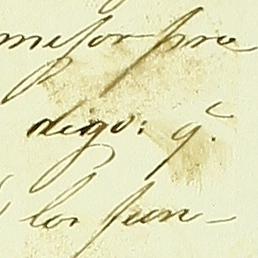 mejor pro
digo: q.
los fun-